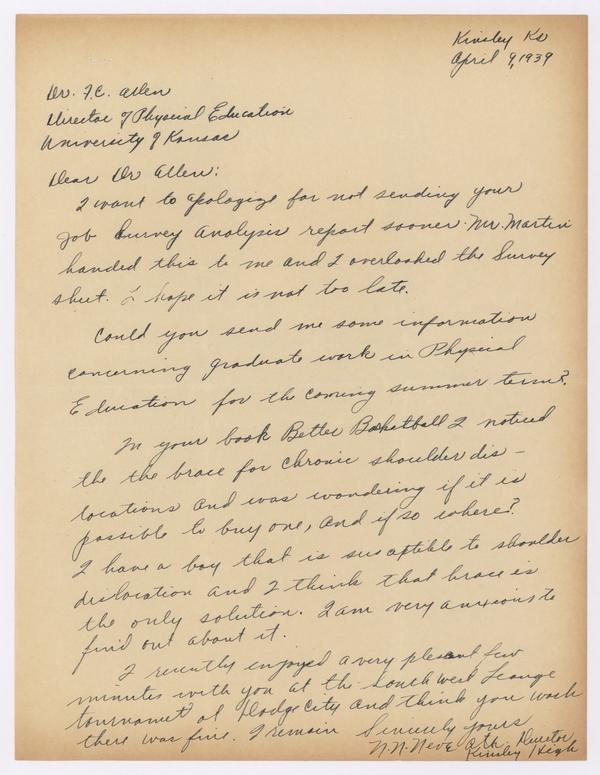 Kinsley Ks
April 9, 1939
Dr. F.C. Allen
Director of Physical Education
University of Kansas
Dear Dr Allen:
I want to apologize for not sending your
Job Survey Analysis report sooner. Mr. Martin
handed this to me and I overlooked the Survey
sheet. I hope it is not too late.
Could you send me some information
concerning graduate work in Physical
Education for the coming summer term?
In your book Better Basketball I noticed
the the brace for chronic shoulder dis-
locations and was wondering if it is
possible to buy one, and if so where?
I have a boy that is susceptible to shoulder
dislocation and I think that brace is
the only solution. I am very anxious to
find out about it.
I recently enjoyed a very plesant few
minutes with you at the Southwest League
tournamet at Dodge City and think you work
there was fine. I remain Sincerely yours
N.N. Neve Ath. Director
Kinsley High